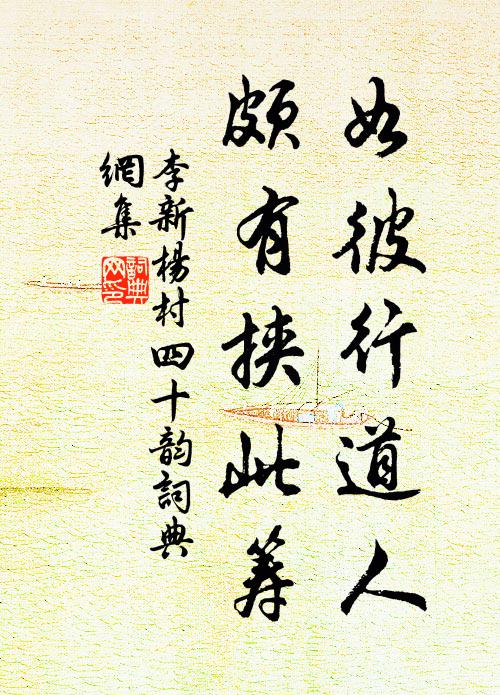 如彼行道人
頗有挾此筭
李新楊村四十韵詞典
網集
詞典网印